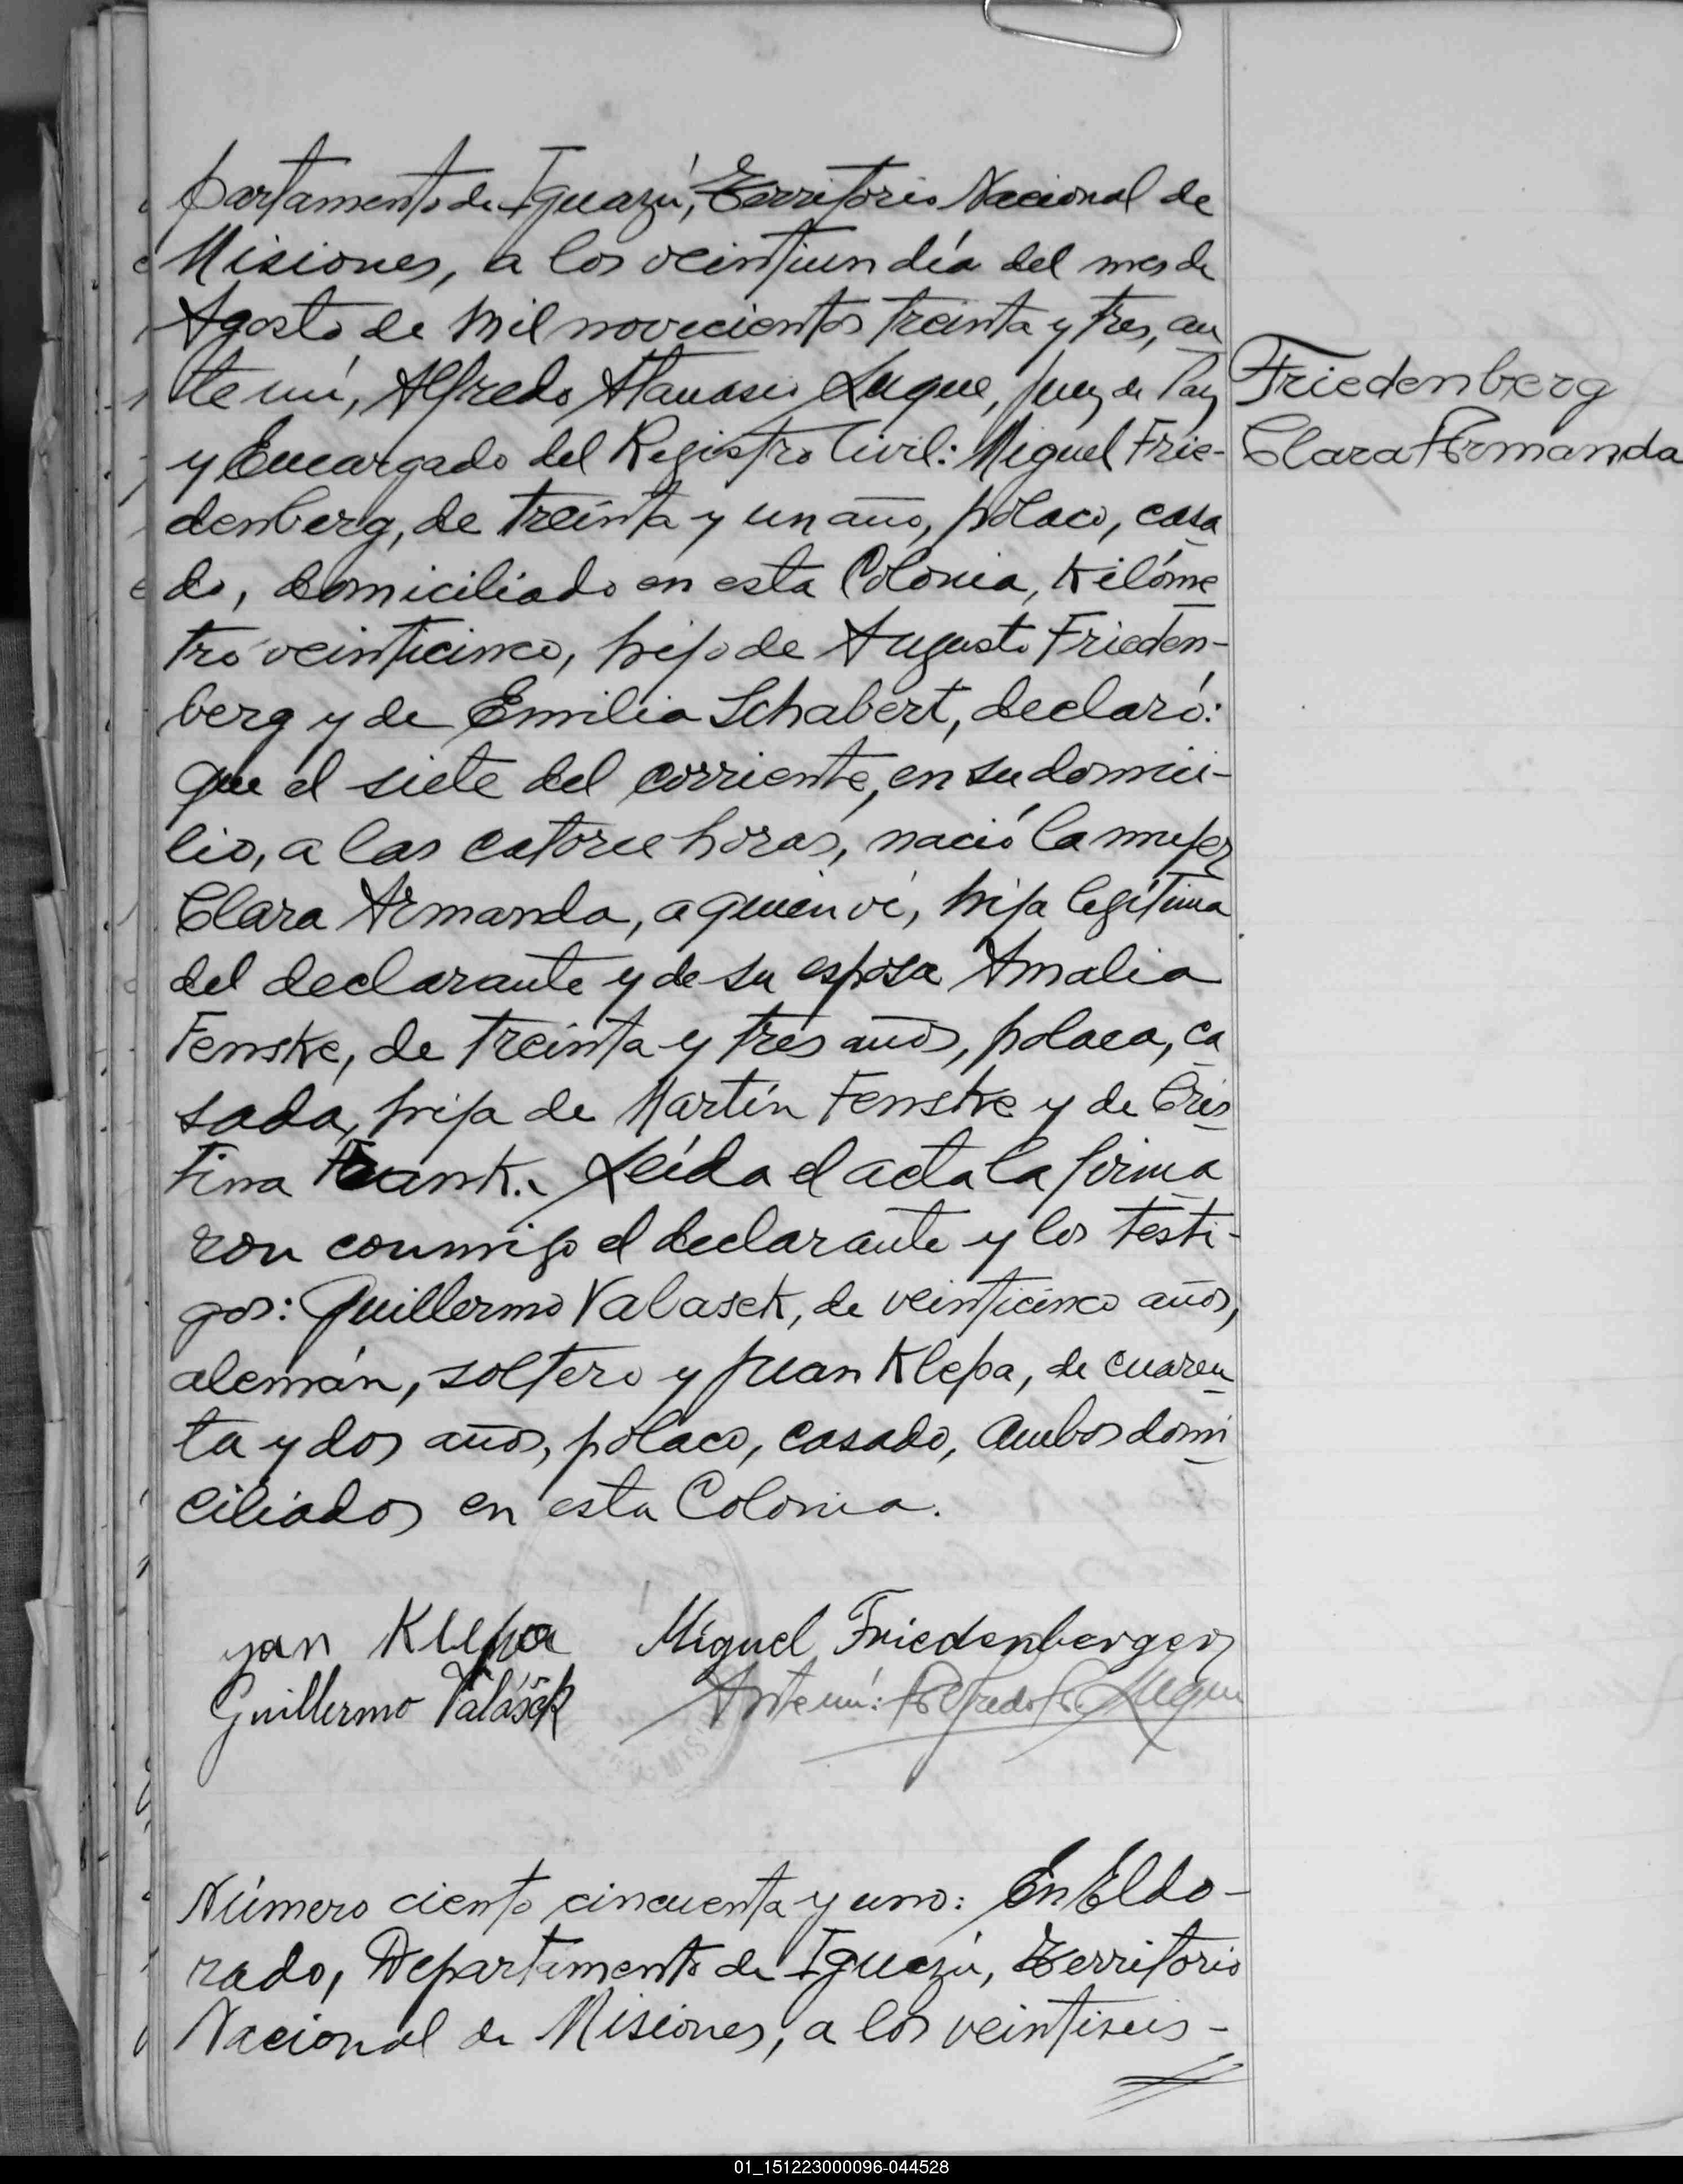 partamento de Iguazú, Territorio Nacional de
Misiones, a los veintiun día del mes de
Agosto de mil novecientos treinta y tres, an
te mí, Alfredo Atanasio Luque, Juez de Paz
y Encargado del Registro Civil: Miguel Frie-
denberg, de treinta y un año, polaco, casa
do, domiciliado en esta Colonia, Kilóme
tro veinticinco, hijo de Augusto Frieden-
berg y de Emilia Schabert, declaró:
que el siete del corriente, en su domici-
lio, a las catorce horas, nació la mujer
Clara Armanda, a quien ví, hija legítima
del declarante y de su esposa Amalia
Fenske, de treinta y tres años, polaca, ca
sada, hija de Martín Fenske y de Cris
tina Frank. Leída el acta la firma
ron conmigo el declarante y los testi-
gos: Guillermo Valasek, de veinticinco años,
alemán, soltero y Juan Klepa, de cuaren
ta y dos años, polaco, casado, ambos domi
ciliados en esta Colonia.
Friedenberg
Clara Armanda
Jan Klepa Miguel Friedenberger
Guillermo Valášek Ante mí: Alfredo A. Luque
MIS
Número ciento cincuenta y uno: En Eldo-
rado, Departamento de Iguazú, Territorio
Nacional de Misiones, a los veintiseis-
01_151223000096-044528